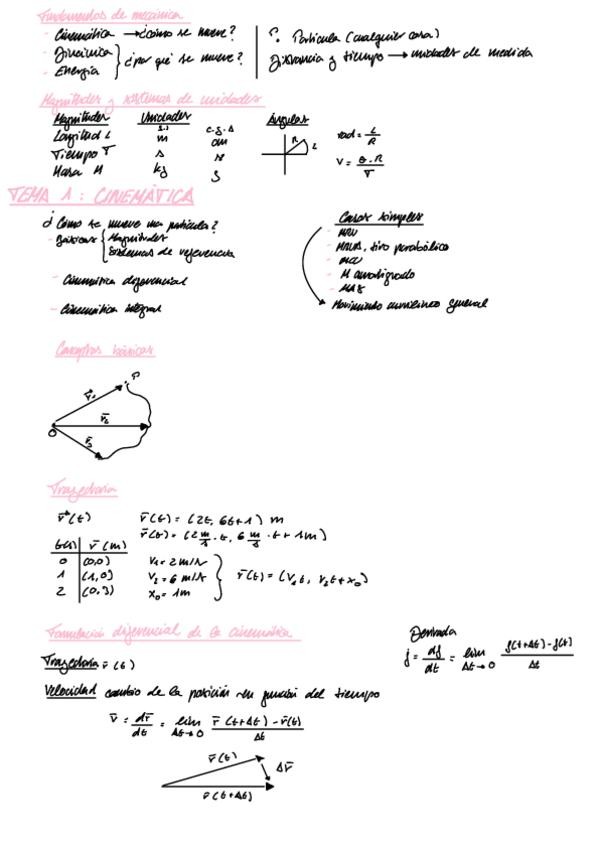 Fundamentos de mecánica
- Cinemática → ¿cómo se mueve?
- Dinámica
- Energía
¿por qué se mueve?
P. Partícula (cualquier cosa)
Distancia y tiempo → unidades de medida
Magnitudes y sistemas de unidades
Magnitudes Unidades Ángulos
S.I c.g.s
Longitud L m cm
Tiempo T s s
Masa M kg g
R L
rad = L/R
V = θ·R/T
TEMA 1: CINEMÁTICA
¿Cómo se mueve una partícula?
- Básicos { Magnitudes
Sistemas de referencia
- Cinemática diferencial
- Cinemática integral
Casos simples
- MRU
- MRUA, tiro parabólico
- MCU
- M
- MAS
Movimiento curvilíneo general
Conceptos básicos
P
r̄₁
r̄₂
r̄₃
O
Trayectoria
r⃗(t)
r̄(t) = (2t, 6t+1) m
r̄(t) = (2 m/s · t, 6 m/s · t + 1m)
t(s) r̄(m)
0 (0,0)
1 (1,0)
2 (0,3)
V₁ = 2 m/s
V₂ = 6 m/s
x₀ = 1m
r̄(t) = (V₁t, V₂t+x₀)
Formulación diferencial de la cinemática
Derivada
f = df/dt = lim Δt→0 f(t+Δt)-f(t)/Δt
Trayectoria r̄(t)
Velocidad cambio de la posición en función del tiempo
v̄ = dr̄/dt = lim Δt→0 r̄(t+Δt) - r̄(t)/Δt
r̄(t)
Δr̄
r̄(t+Δt)